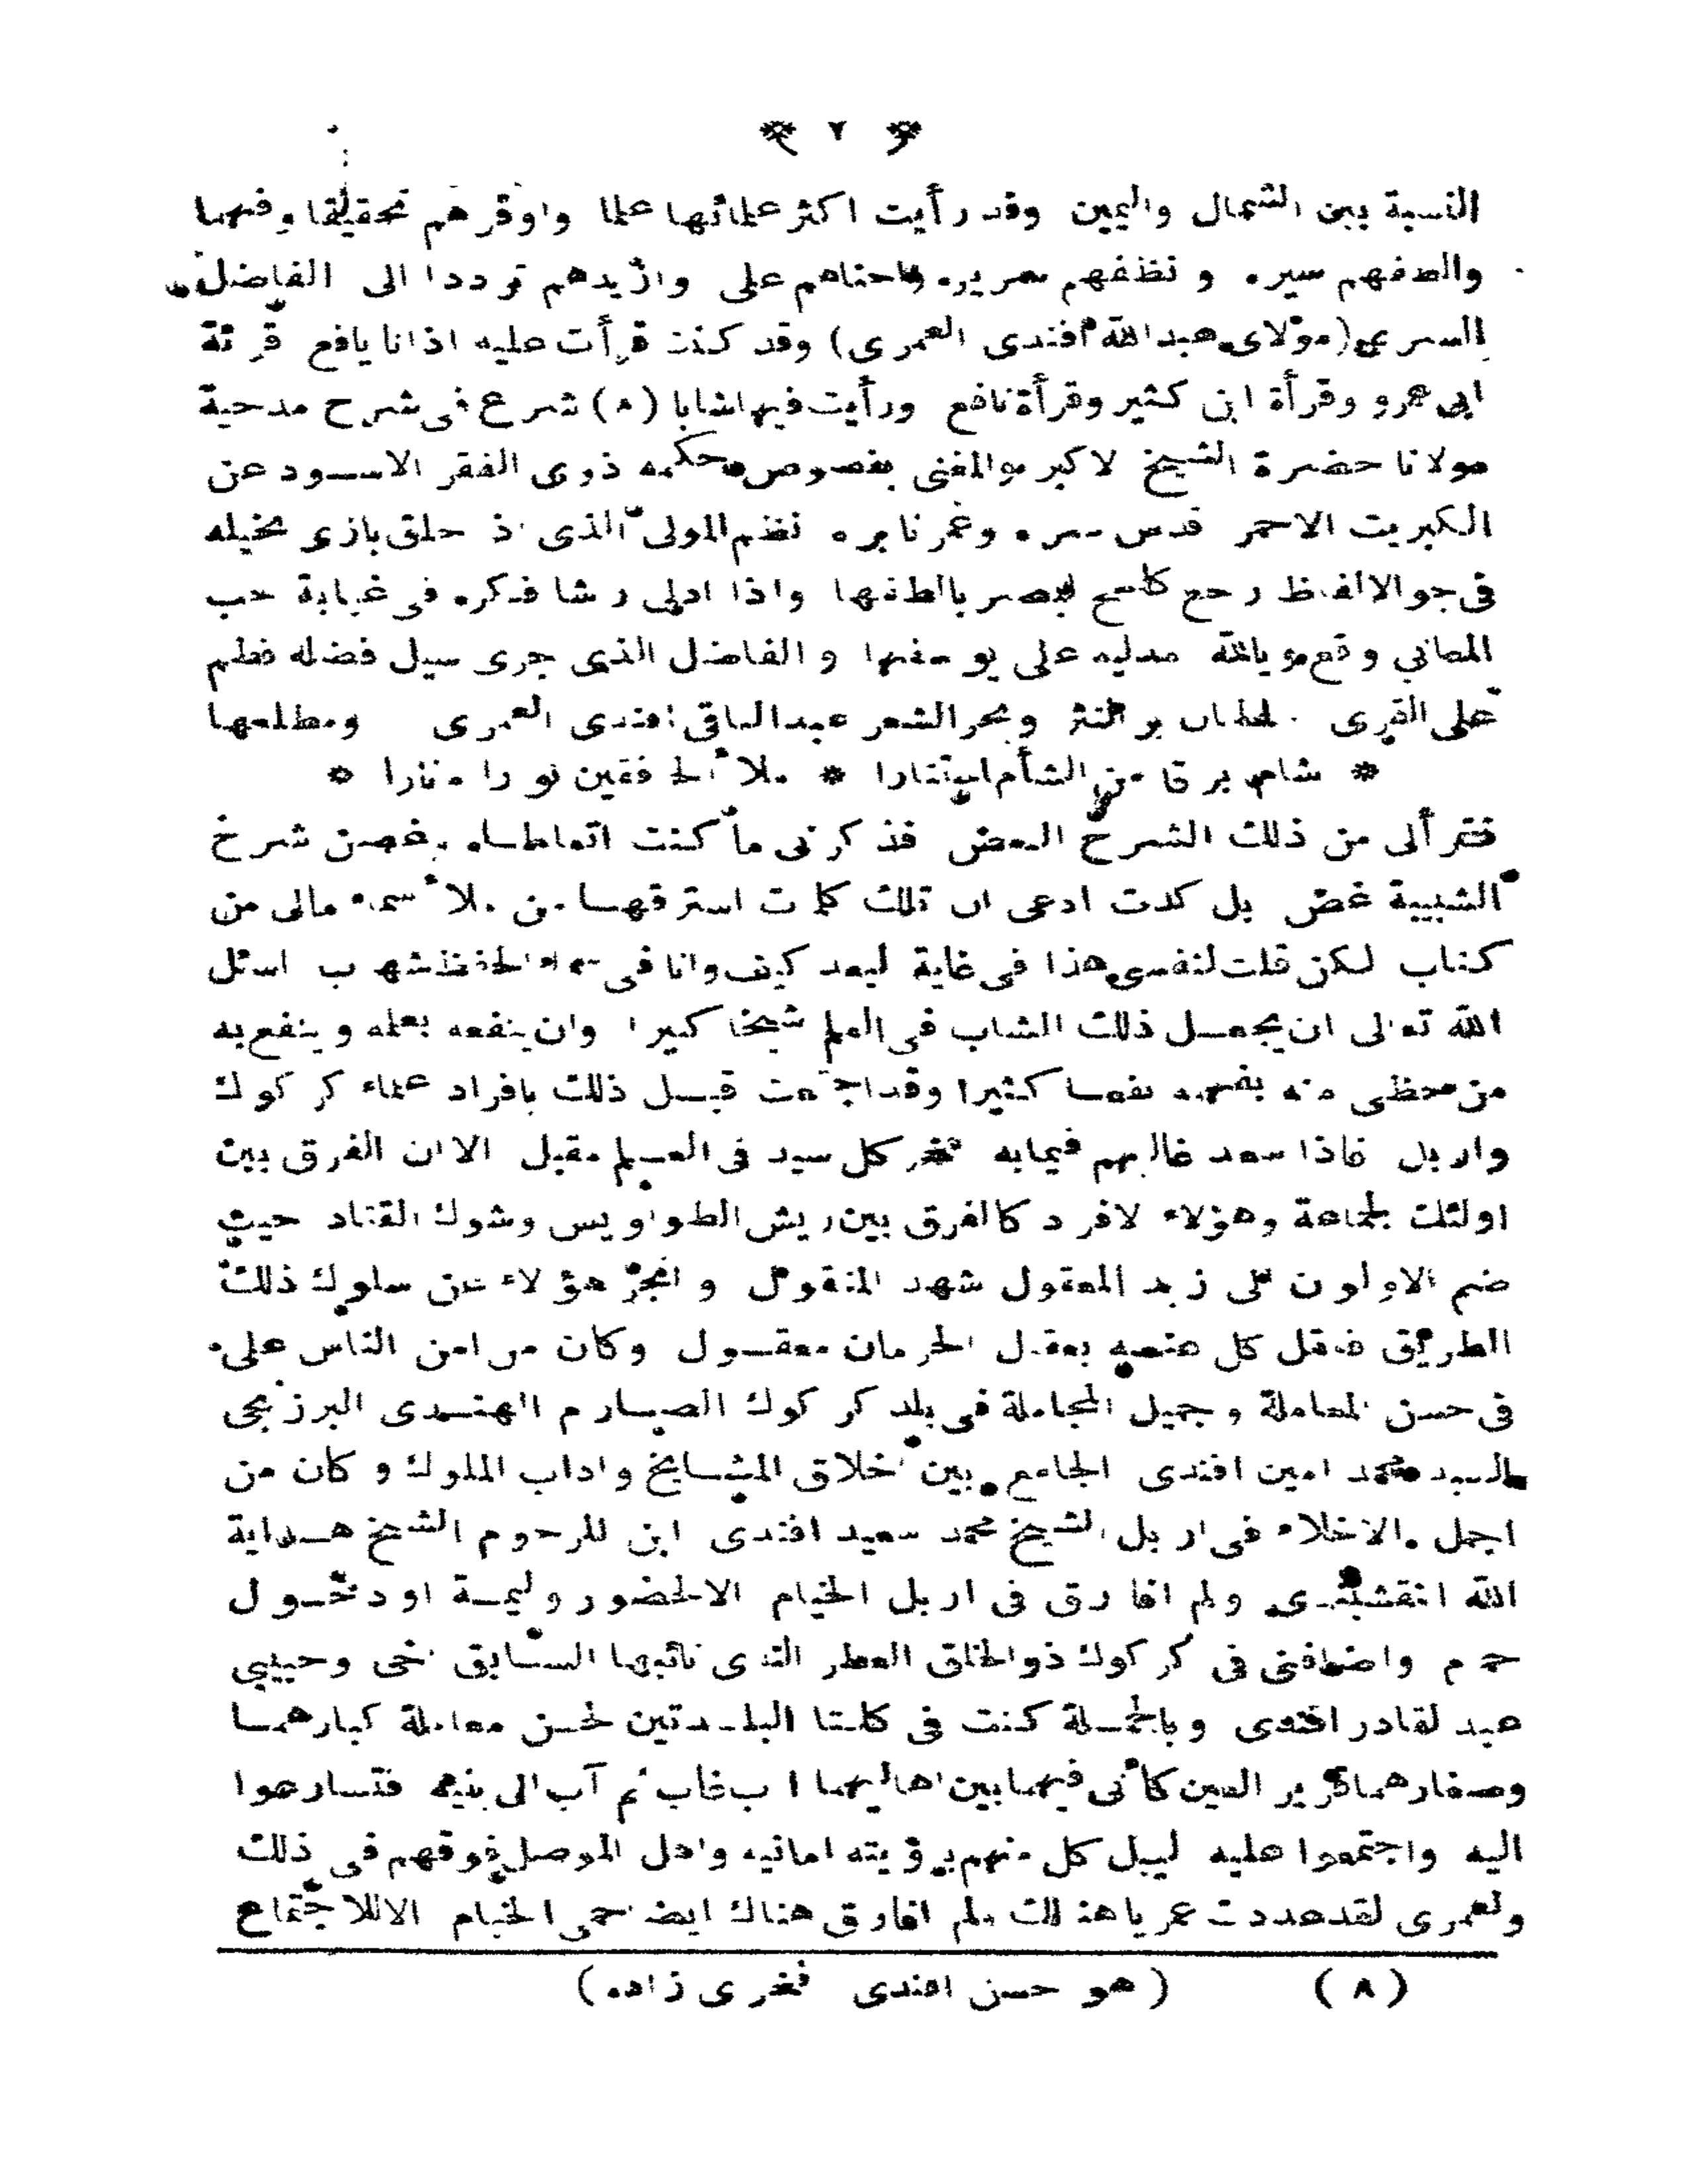 ٢
النسبة بين الشمال واليمين وقد رأيت اكثر علمائها علما واوفرهم تحقيقا وفهما
والطفهم سيره ونظفهم سريره واحناهم على وازيدهم ترددا الى الفاضل
السرى (مولاى عبدالله افندى العمرى) وقد كنت قرأت عليه اذ انا يافع قرئة
ابى عمرو وقرأة ابن كثير وقرأة نافع ورأيت فيها شابا (٨) شرع فى شرح مدحية
مولانا حضرة الشيخ لاكبر والمغنى بفصوص حكمه ذوى الفقر الاسود عن
الكبريت الاحمر قدس سره وغمرنا بره نظم المولى الذى ذ حلق بازى مخيله
فى جو الالفاظ رجع كاسح ببصر بالطفها واذا ادلى رشا فكره فى غيابة جب
المعانى وقع ويالله مدليه على يوسفها والفاضل الذى جرى سيل فضله فطم
على القرى بر النثر وبحر الشعر عبدالباقى افندى العمرى ومطلعها
* شام برقا من الشأم استنارا * ملأ الخافقين نورا ونارا *
فقرألى من ذلك الشرح البعض فذكرنى ما كنت اتعاطاه وغصن شرخ
الشبيبة غض بل كدت ادعى ان تلك كلمات استرقها من ملأ سمه مالى من
كتاب لكن قلت لنفسى هذا فى غاية لبعد كيف وانا فى سماء الحفظ شهاب اسئل
الله تعالى ان يجعل ذلك الشاب فى العلم شيخا كبيرا وان ينفعه بعلمه وينفع به
من يحظى منه بفهمه نفعا كثيرا وقد اجتمعت قبل ذلك بافراد علماء كركوك
واربل فاذا سعد غالبهم فيمابه فخر كل سيد فى العلم مقبل الا ان الفرق بين
اولئك لجماعة وهؤلاء لافراد كالفرق بين ريش الطواويس وشوك القتاد حيث
ضم الاولون الى زبد المعقول شهد المنقول وانجز هؤلاء عن سلوك ذلك
الطريق فعقل كل عنه بعقل الحرمان معقول وكان من امن الناس على
فى حسن لمعاملة وجميل المجاملة فى بلد كركوك الصارم الهندى البرزنجى
السيد محمد امين افندى الجامع بين اخلاق المشايخ واداب الملوك وكان من
اجمل الاخلاء فى اربل الشيخ محمد سعيد افندى ابن المرحوم الشيخ هداية
الله انقشبندى ولم افارق فى اربل الخيام الا لحضور وليمة او دخول
حمام واضافنى فى كركوك ذوالخلق العطر الندى نائبها السابق اخى وحبيبى
عبد لقادر افندى وبالجملة كنت فى كلتا البلدتين لحسن معاملة كبارهما
وصغارهما قرير العين كأنى فيهما بين اهاليهما اب غاب ثم آب الى بنيه فتسارعوا
اليه واجتمعوا عليه لينل كل منهم برؤيته امانيه واهل الموصل فوقهم فى ذلك
ولعمرى لقد عددت عمريا هنالك ولم افارق هناك ايضا حمى الخيام الا للاجتماع
(٨) (هو حسن افندى فخرى زاده)